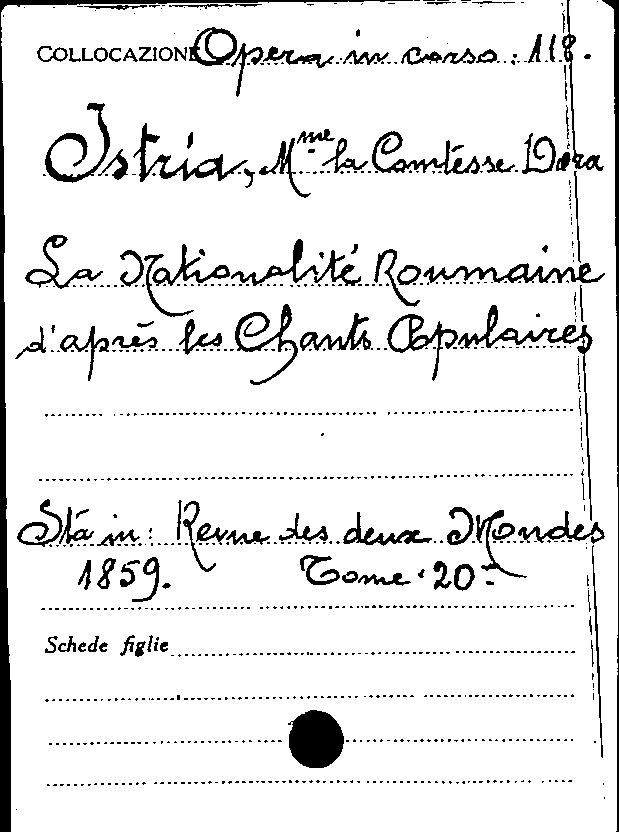 COLLOCAZIONE Opera in corso: 118.
Istria, Mme la Comtesse Dora
La Nationalité Roumaine
d'après les Chants Populaires
Sta in: Revue des deux Mondes
1859. Tome 20-
Schede figlie